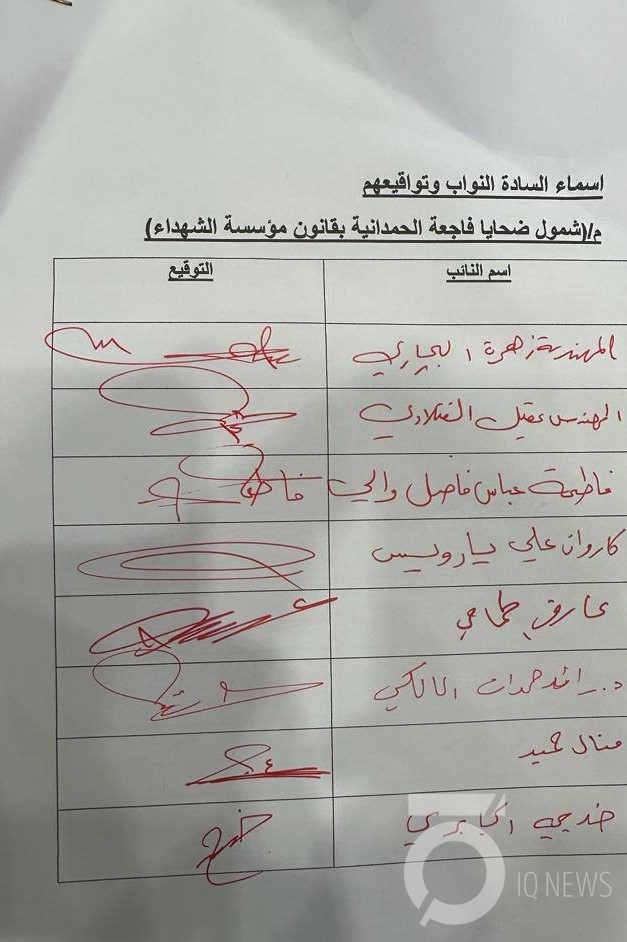 اسماء السادة النواب وتواقيعهم
م/(شمول ضحايا فاجعة الحمدانية بقانون مؤسسة الشهداء)
اسم النائب التوقيع
المهندسة زهرة البجاري
المهندس عقيل الفتلاوي
فاطمة عباس فاضل والي
كاروان علي يارويس
عارف حمامي
د. رائد حمدان المالكي
منال حميد
الجابري
IQ NEWS